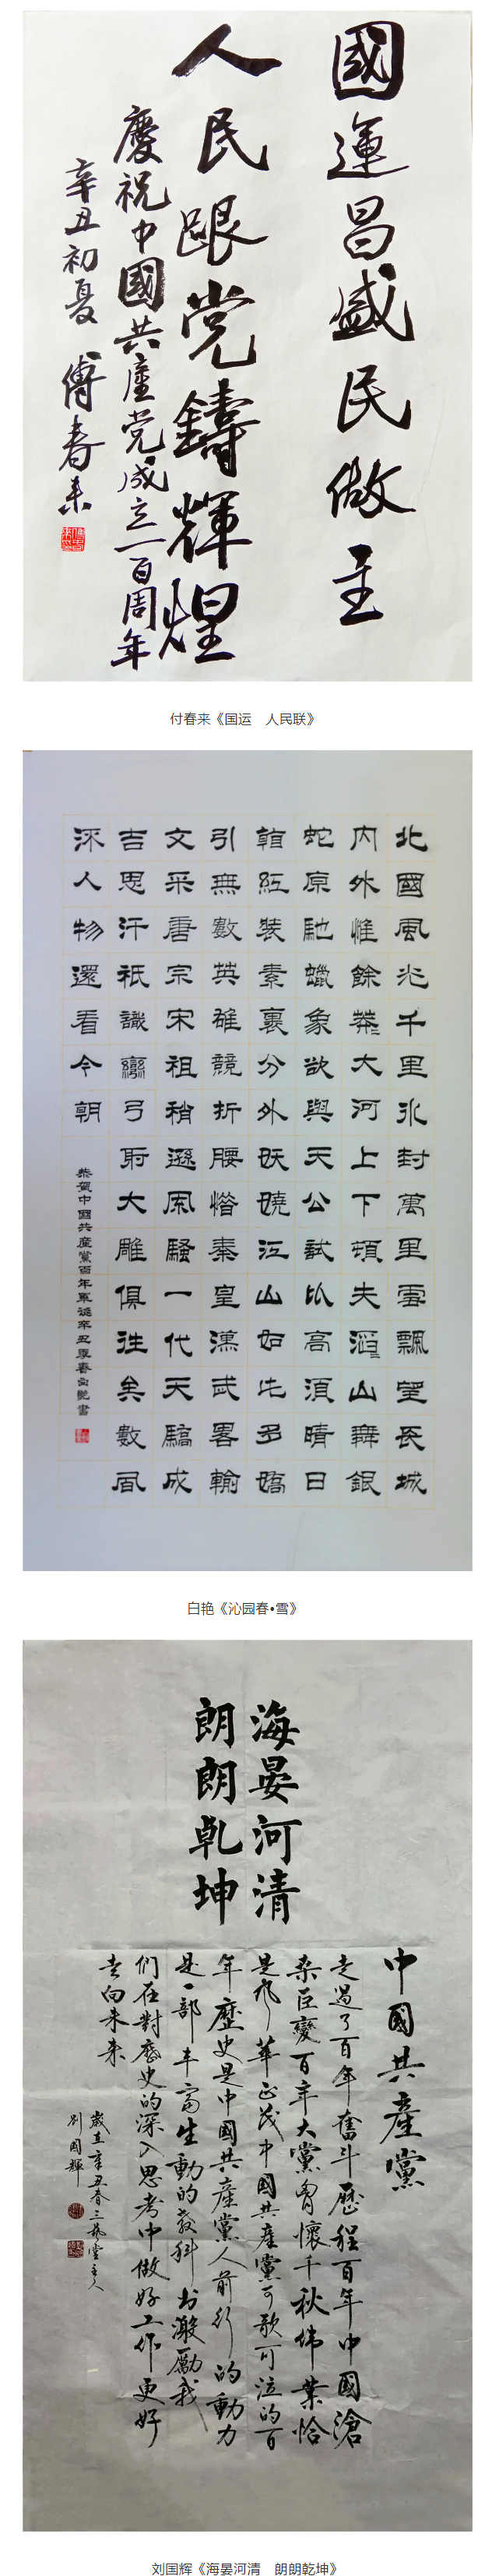 國運昌盛民做主
人民跟党鑄輝煌
慶祝中國共產党成立一百周年
辛丑初夏 傅春来
付春来《国运　人民联》
北國風光千里冰封萬里雪飄望長城
内外惟餘莽〻大河上下頓失滔〻山舞銀
蛇原馳蠟象欲與天公試比高須晴日
看紅裝素裹分外妖嬈江山如此多嬌
引無數英雄競折腰惜秦皇漢武畧輸
文采唐宗宋祖稍遜風騷一代天驕成
吉思汗衹識彎弓射大雕俱往矣數風
流人物還看今朝
恭賀中國共産黨百年華誕辛丑季春白艷書
白艳《沁园春•雪》
海晏河清
朗朗乾坤
中國共產黨
走過了百年奮斗歷程百年中國滄
桑巨變百年大黨胸懷千秋偉業恰
是风華正茂中國共產黨可歌可泣的百
年歷史是中國共產黨人前行的動力
是一部丰富生動的教科书激勵我
們在對歷史的深入思考中做好工作更好
走向未来
歲在辛丑春三藝堂主人
劉國輝
刘国辉《海晏河清　朗朗乾坤》